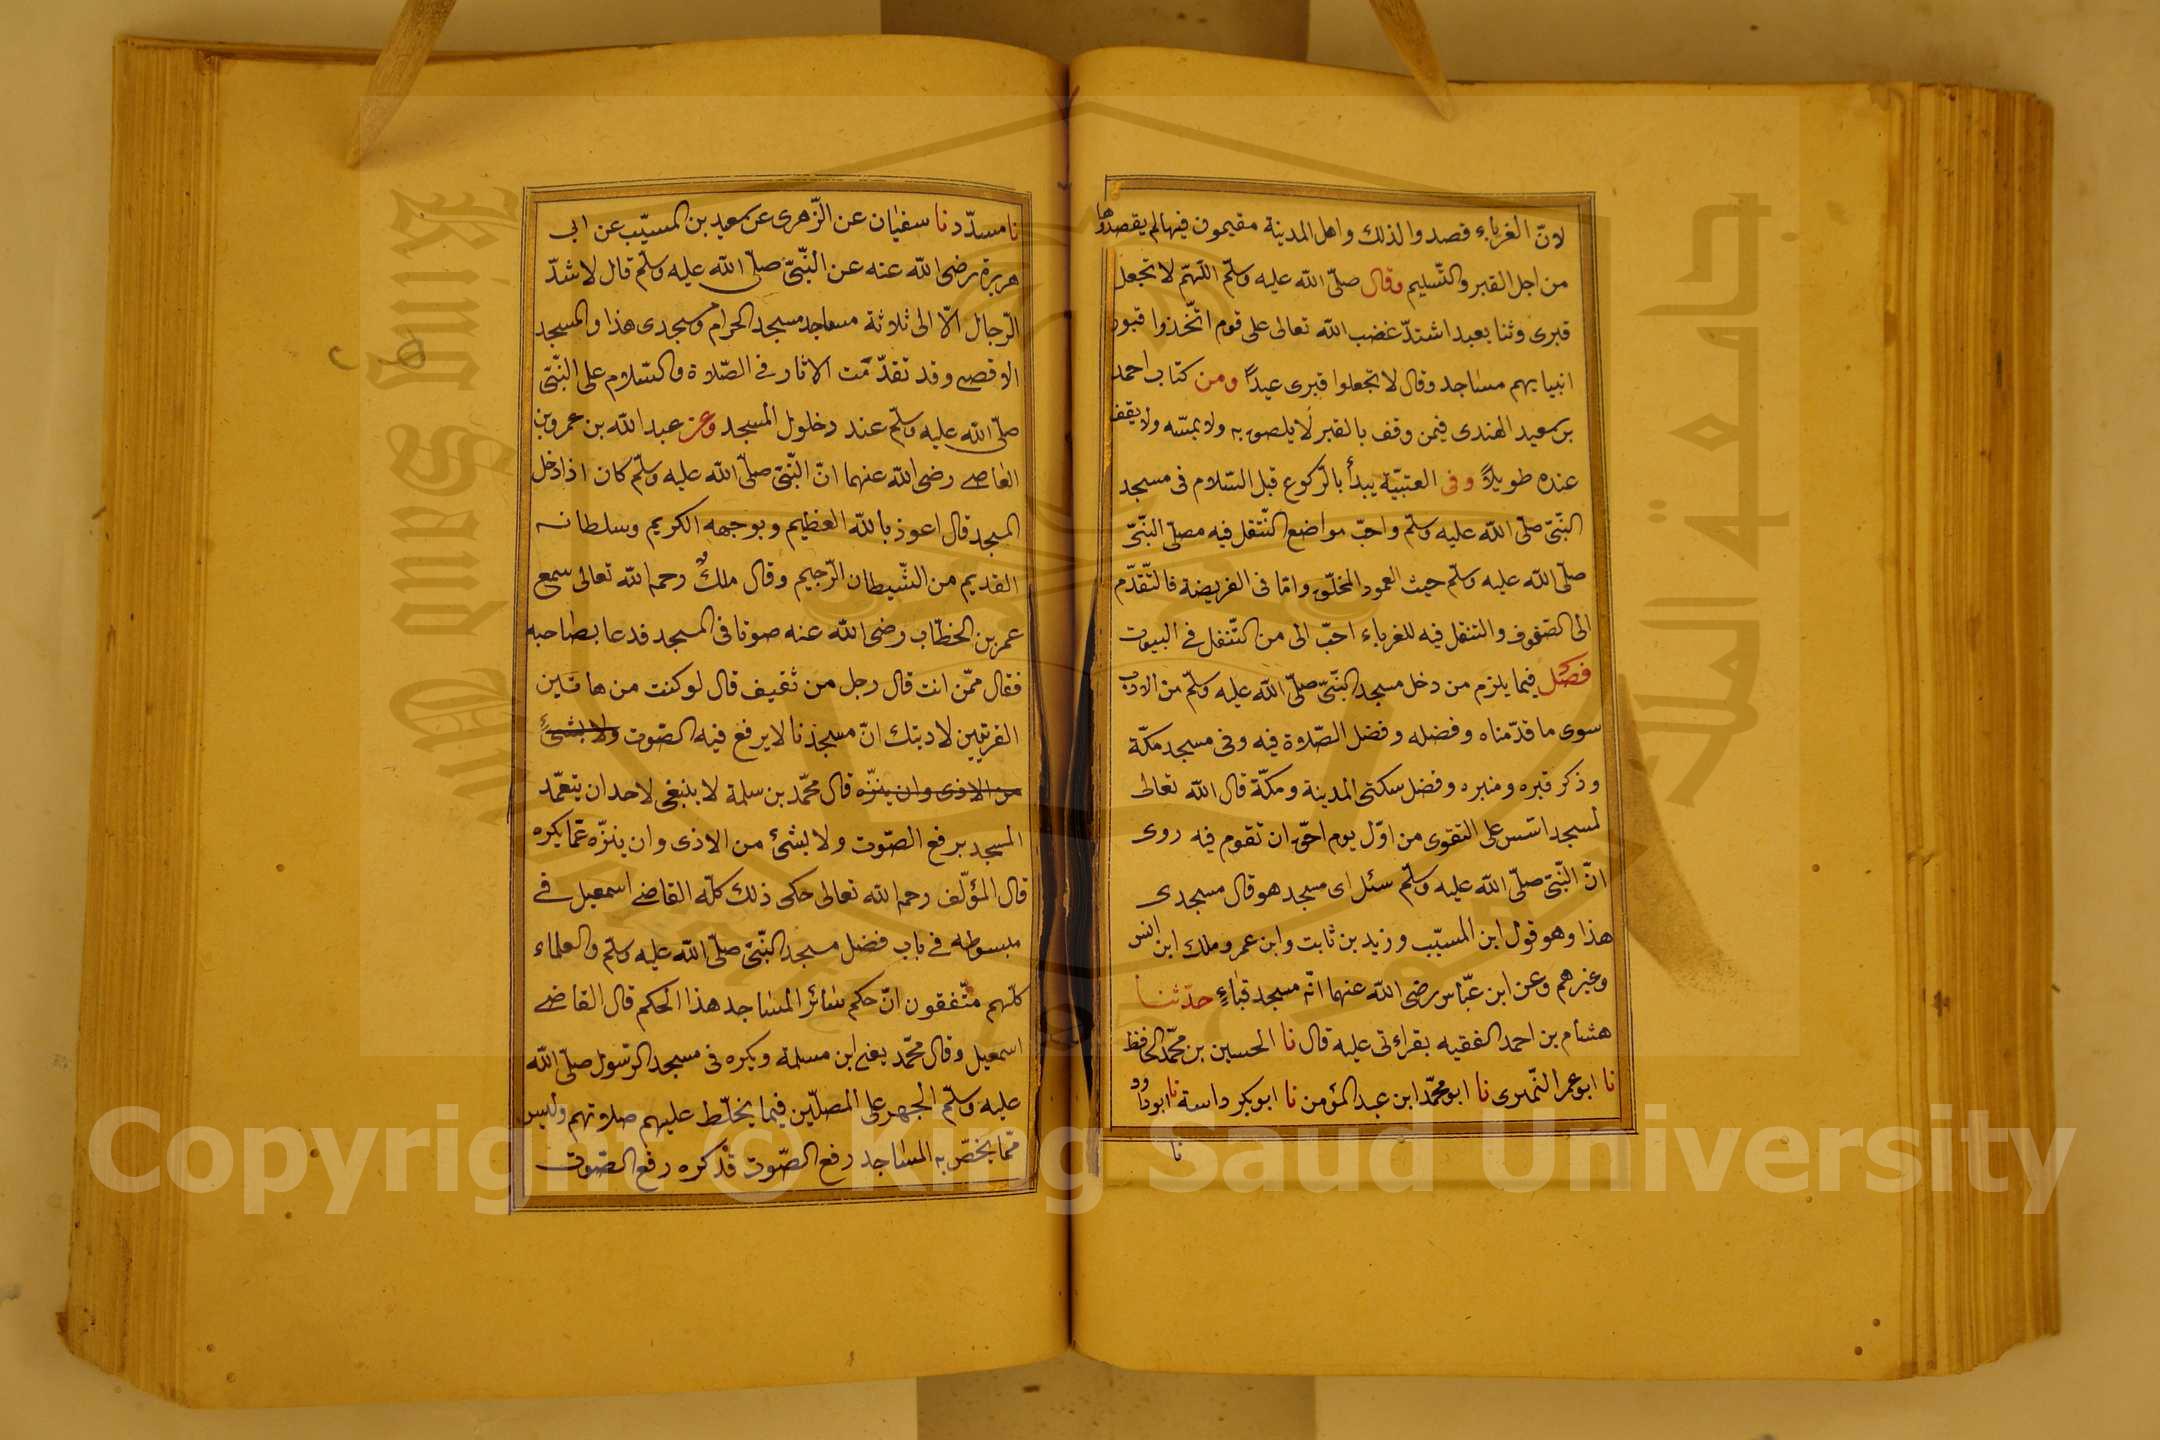 لانّ الغرباء قصدوا لذلك واهل المدينة مقيمون فيها لم يقصدوها
من اجل القبر والتّسليم وقال صلّى الله عليه وسلّم اللّهمّ لا تجعل
قبرى وثنا يعبد اشتدّ غضب الله تعالى على قوم اتّخذوا قبور
انبيايهم مساجد وقال لا تجعلوا قبرى عيدًا ومن كتاب احمد
بن سعيد الهندى فيمن وقف بالقبر لا يلصق به ولا يمسّه ولا يقف
عنده طويلًا وفى العتبيّة يبدأ بالرّكوع قبل السّلام فى مسجد
النّبىّ صلّى الله عليه وسلّم واحبّ مواضع التّنفل فيه مصلّى النّبىّ
صلّى الله عليه وسلّم حيث العمود المخلّق وامّا فى الفريضة فالتّقدّم
الى الصّفوف والتنفل فيه للغرباء احبّ الى من التّنفل فى البيوت
فصل فيما يلزم من دخل مسجد النّبىّ صلّى الله عليه وسلّم من الادب
سوى ما قدّمناه وفضله وفضل الصّلاة فيه وفى مسجد مكّة
وذكر قبره ومنبره وفضل سكنى المدينة ومكّة قال الله تعالى
لمسجد اسّس على التقوى من اوّل يوم احقّ ان تقوم فيه روى
انّ النّبىّ صلّى الله عليه وسلّم سئل اى مسجد هو قال مسجدى
هذا وهو قول ابن المسيّب وزيد بن ثابت وابن عمر وملك ابن انس
وغيرهم وعن ابن عبّاس رضى الله عنهما انّه مسجد قباء حدّثنا
هشام بن احمد الفقيه بقراءتى عليه قال نا الحسين بن محمّد الحافظ
نا ابو عمر النّمرى نا ابو محمّد ابن عبد المؤمن نا ابو بكر داسة نا ابو داود
نا
نا مسدّد نا سفيان عن الزّهرى عن سعيد بن المسيّب عن ابى
هريرة رضى الله عنه عن النّبىّ صلّى الله عليه وسلّم قال لا تشدّ
الرّحال الّا الى ثلاثة مساجد مسجد الحرام ومسجدى هذا والمسجد
الاقصى وقد تقدّمت الاثار فى الصّلاة والسّلام على النّبىّ
صلّى الله عليه وسلّم عند دخول المسجد وعن عبد الله بن عمرو بن
العاصى رضى الله عنهما انّ النّبىّ صلّى الله عليه وسلّم كان اذا دخل
المسجد قال اعوذ بالله العظيم وبوجهه الكريم وسلطانه
القديم من الشّيطان الرّجيم وقال ملكٌ رحمه الله تعالى سمع
عمر بن الخطّاب رضى الله عنه صوتا فى المسجد فدعا بصاحبه
فقال ممّن انت قال رجل من ثقيف قال لو كنت من هاتين
القريتين لادبتك انّ مسجدنا لا يرفع فيه الصّوت ولا بشئ
من الاذى وان ينزّه قال محمّد بن سلمة لا ينبغى لاحد ان يتعمّد
المسجد برفع الصّوت ولا بشئ من الاذى وان ينزّه عمّا يكره
قال المؤلّف رحمه الله تعالى حكى ذلك كلّه القاضى اسمعيل فى
مبسوطه فى باب فضل مسجد النّبىّ صلّى الله عليه وسلّم والعلماء
كلّهم متّفقون انّ حكم سائر المساجد هذا الحكم قال القاضى
اسمعيل وقال محمّد يعنى ابن مسلمة ويكره فى مسجد الرّسول صلّى الله
عليه وسلّم الجهر على المصلّين فيما يخلّط عليهم صلاتهم وليس
ممّا يخصّ به المساجد رفع الصّوت قد كره رفع الصّوت
جامعة الملك سعود
King Saud University
Copyright © King Saud University